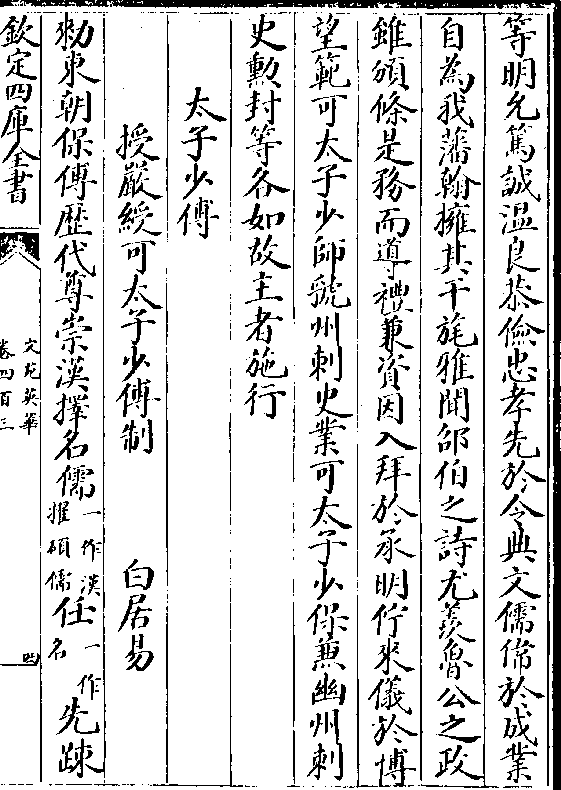 等明允篤誠温良恭儉忠孝先於令典文儒偹於成業
自為我藩翰擁其干旄雅聞邵伯之詩尤羨魯公之政
雖頒條是務而導禮兼資因入拜於承明佇來儀於博
望範可太子少師虢州刺史業可太子少保兼幽州刺
史勲封等各如故主者施行
太子少傅
授嚴綬可太子少傅制 白居易
勑東朝保傅歴代尊崇漢擇名儒一作漢擢碩儒任一作名先踈
欽定四庫全書
文苑英華
卷四百三
四